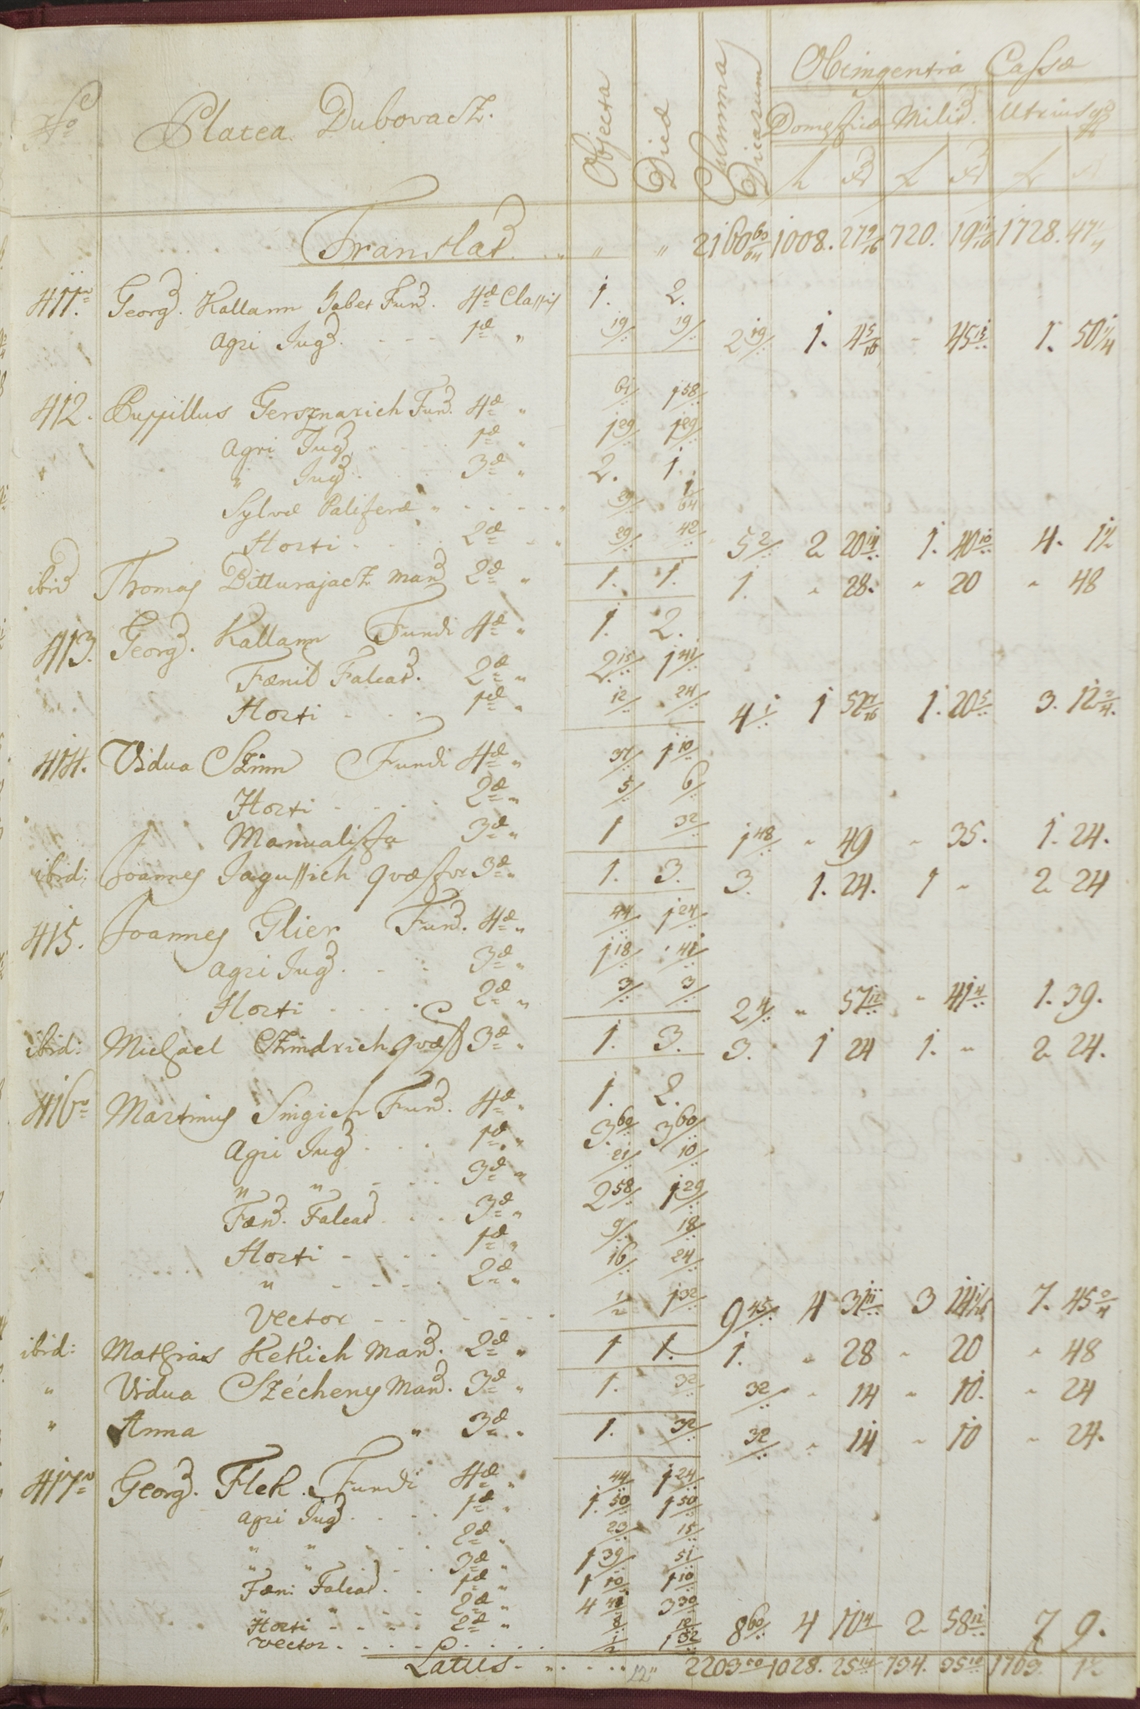 No Platea Dubovacz. Objecta Dicæ Summa Dicarum Obtingentia Cassæ
Domestica Milit. Utriusq
f xr f xr f xr
Translat. " " 2160 60/64 1008. 27 720. 19 1728. 47
411. Georg. Kallann habet Fund. 4æ Classis 1. 2.
Agri Jug. 1æ " 19/ 19/ 2 19/ 1. 4 5/16 - 45 1. 50
412. Pupillus Gersznarich Fund. 4æ " 61/ 1 58/
Agri Jug. 1æ " 1 29/ 1 29/
" Jug. 3æ " 2. 1.
Sylvæ Paliferæ " 1/64
Horti 2æ " 42/ 5 2/ 2 20 1. 4.
ibid Thomas Bitturajacz Man. 2æ " 1. 1. 1. " 28. " 20 " 48
413. Georg. Kallann Fundi 4æ " 1. 2.
Fænil Falcat. 2æ " 2 15/ 1 41/
Horti 1æ " 12/ 24/ 4 1/ 1 52 1. 20 3. 12
414. Vidua Szinn Fundi 4æ " 37/ 1 10/
Horti 2æ " 5/ 6/
Manualista 3æ " 1 32/ 1 48/ " 49 " 35. 1. 24.
ibid: Joannes Jagussich quæstor 3æ " 1. 3. 3. 1. 24. 1 " 2 24
415. Joannes Glier Fund. 4æ " 44/ 1 24/
Agri Jug. 3æ " 1 18/ 41/
Horti 2æ " 3/ 3/ 2 4/ " 57 " 41 1. 39.
ibid: Michael Szmdrich quæst 3æ " 1. 3. 3. 1 24 1. " 2 24.
416 Martinus Singich Fund. 4æ " 1. 2.
Agri Jug 1æ " 3 60/ 3 60/
" " 3æ " 21/ 10/
Fæn. Falcat 3æ " 2 58/ 1 29/
Horti 1æ " 9/ 18/
" 2æ " 16/ 24/
Vector 1/2 1 32/ 9 45/ 4 31 3 14 7. 45
ibid: Mathias Kekich Man. 2æ " 1 1. 1. " 28 " 20 " 48
" Vidua Szécheny Man. 3æ " 1. 32/ 32/ " 14 " 10. " 24
" Anna " 3æ " 1. 32/ 32/ " 14 " 10 " 24.
417 Georg. Flek. Fundi 4æ " 44/ 1 24/
Agri Jug. 1æ " 1. 50/ 1 50/
" " 2æ " 23/ 15/
" " 3æ " 1 39/ 51/
Fæni Falcat. 1æ " 1 10/ 1 10/
" " 2æ " 4 3
Horti 2æ "
Vector 1/2 1 32/ 8 60/ 4 10 2 58 7 9.
Latus 2203 50 1028. 25 734. 35 1763.